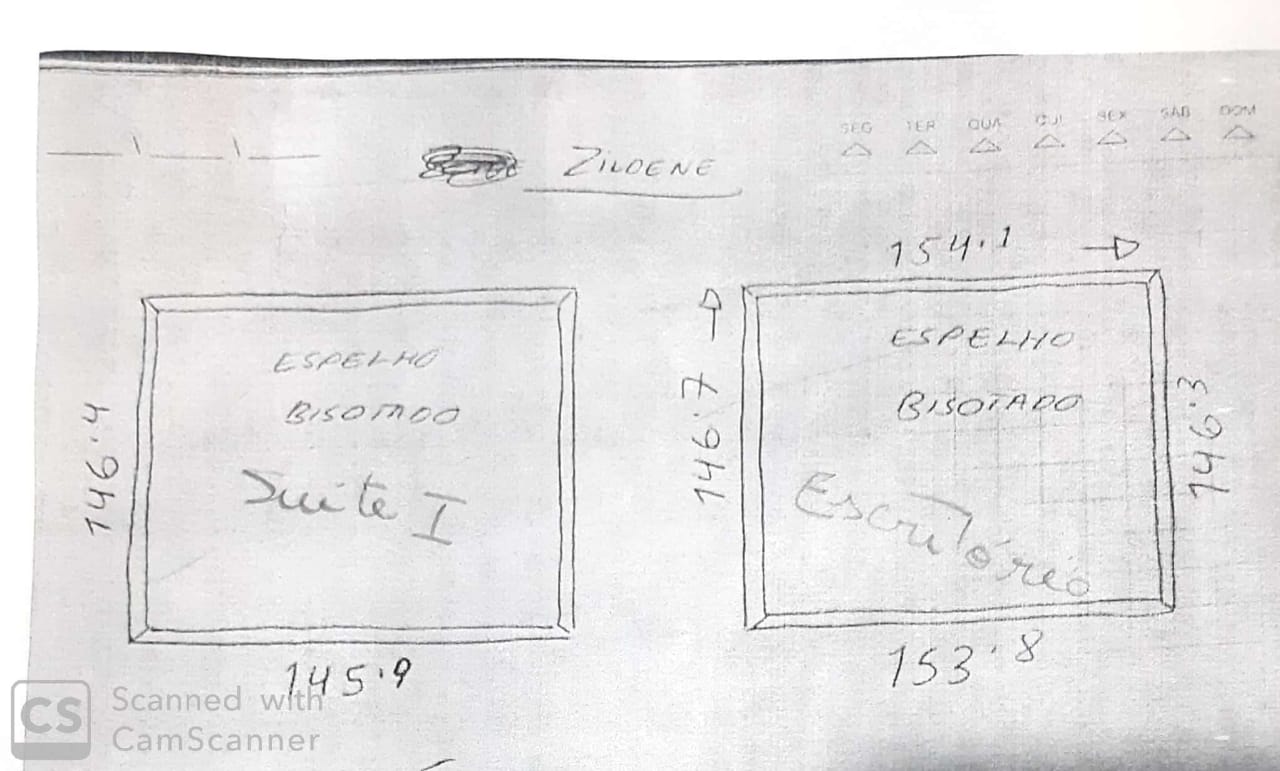 SEG TER QUA QUI SEX SAB DOM
ZILDENE
146.4
ESPELHO
BISOTADO
Suite I
145.9
154.1
146.7
ESPELHO
BISOTADO
Escritório
146.3
153.8
CS
Scanned with
CamScanner